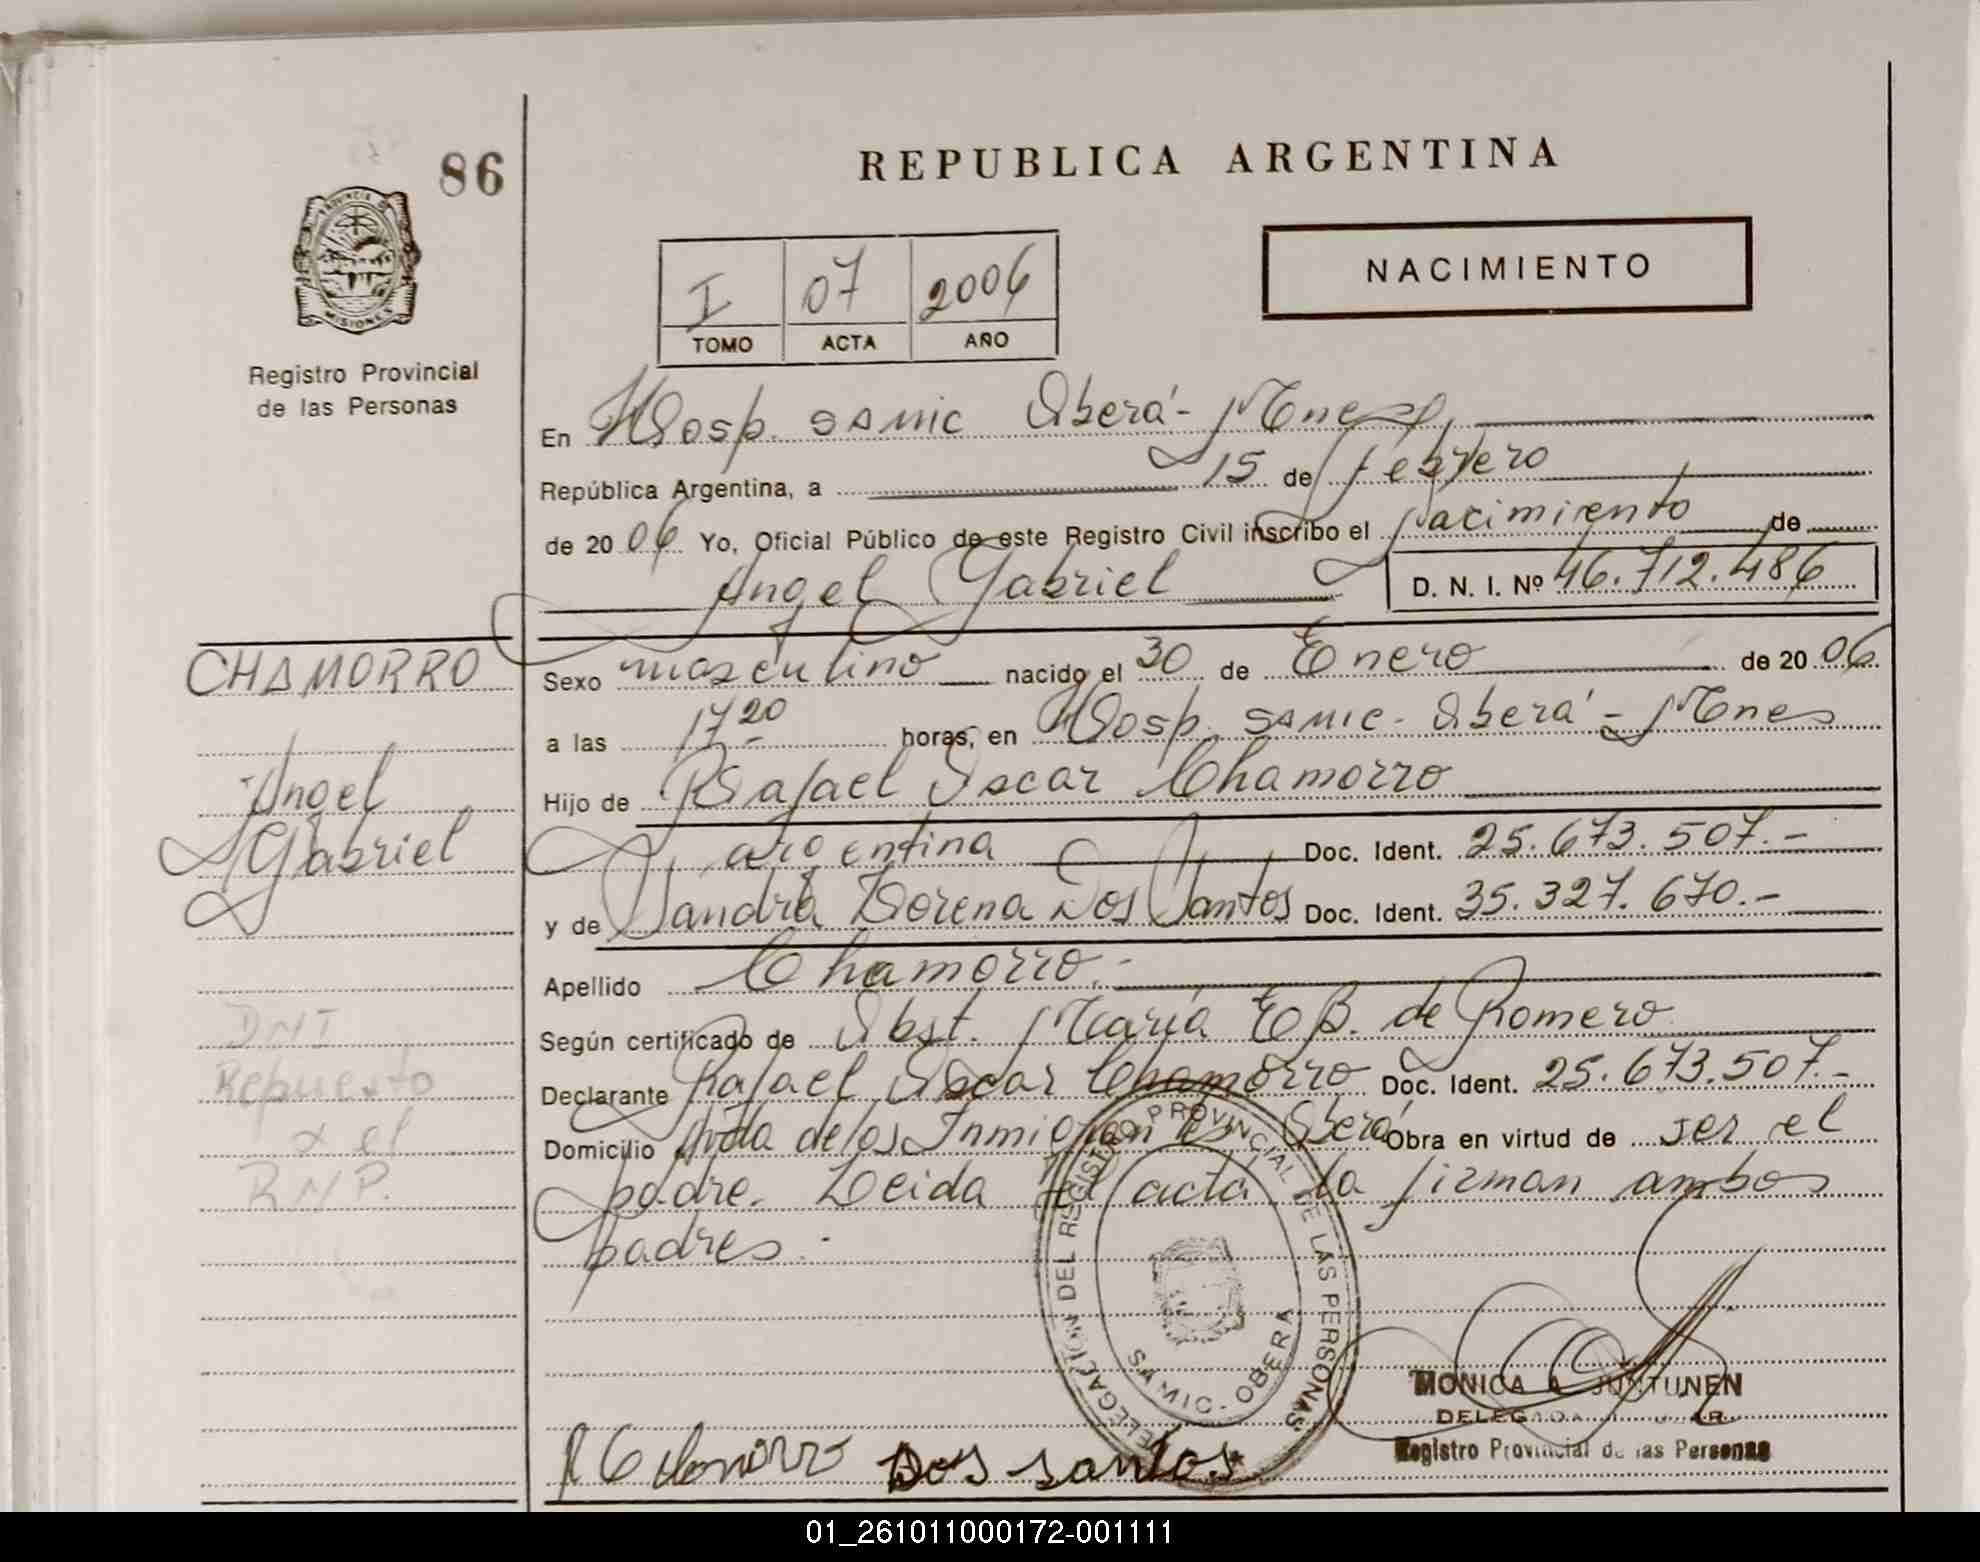 86
REPUBLICA ARGENTINA
PROVINCIA DE
MISIONES
Registro Provincial
de las Personas
I 07 2006
TOMO ACTA AÑO
NACIMIENTO
En Hosp. SAMIC Oberá - Mnes
República Argentina, a 15 de febrero
de 2006 Yo, Oficial Público de este Registro Civil inscribo el nacimiento de
Angel Gabriel D. N. I. Nº 46.712.486
CHAMORRO
Angel
Gabriel
Sexo masculino nacido el 30 de Enero de 2006
a las 17 20 horas, en Hosp. SAMIC - Oberá - Mnes
Hijo de Rafael Oscar Chamorro
argentina Doc. Ident. 25.673.507.-
y de Sandra Lorena Dos Santos Doc. Ident. 35.327.670.-
Apellido Chamorro.-
Según certificado de Obst. María E B. de Romero
Declarante Rafael Oscar Chamorro Doc. Ident. 25.673.507.-
Domicilio Avda de los Inmigrantes Oberá Obra en virtud de ser el
padre. Leida el acta la firman ambos
padres.-
DNI
Repuesto
x el
RNP.
DELEGACION DEL REGISTRO PROVINCIAL DE LAS PERSONAS
SAMIC - OBERA
MONICA A. JUNTUNEN
DELEGADA
Registro Provincial de las Personas
R Chamorro Dos santos
01_261011000172-001111